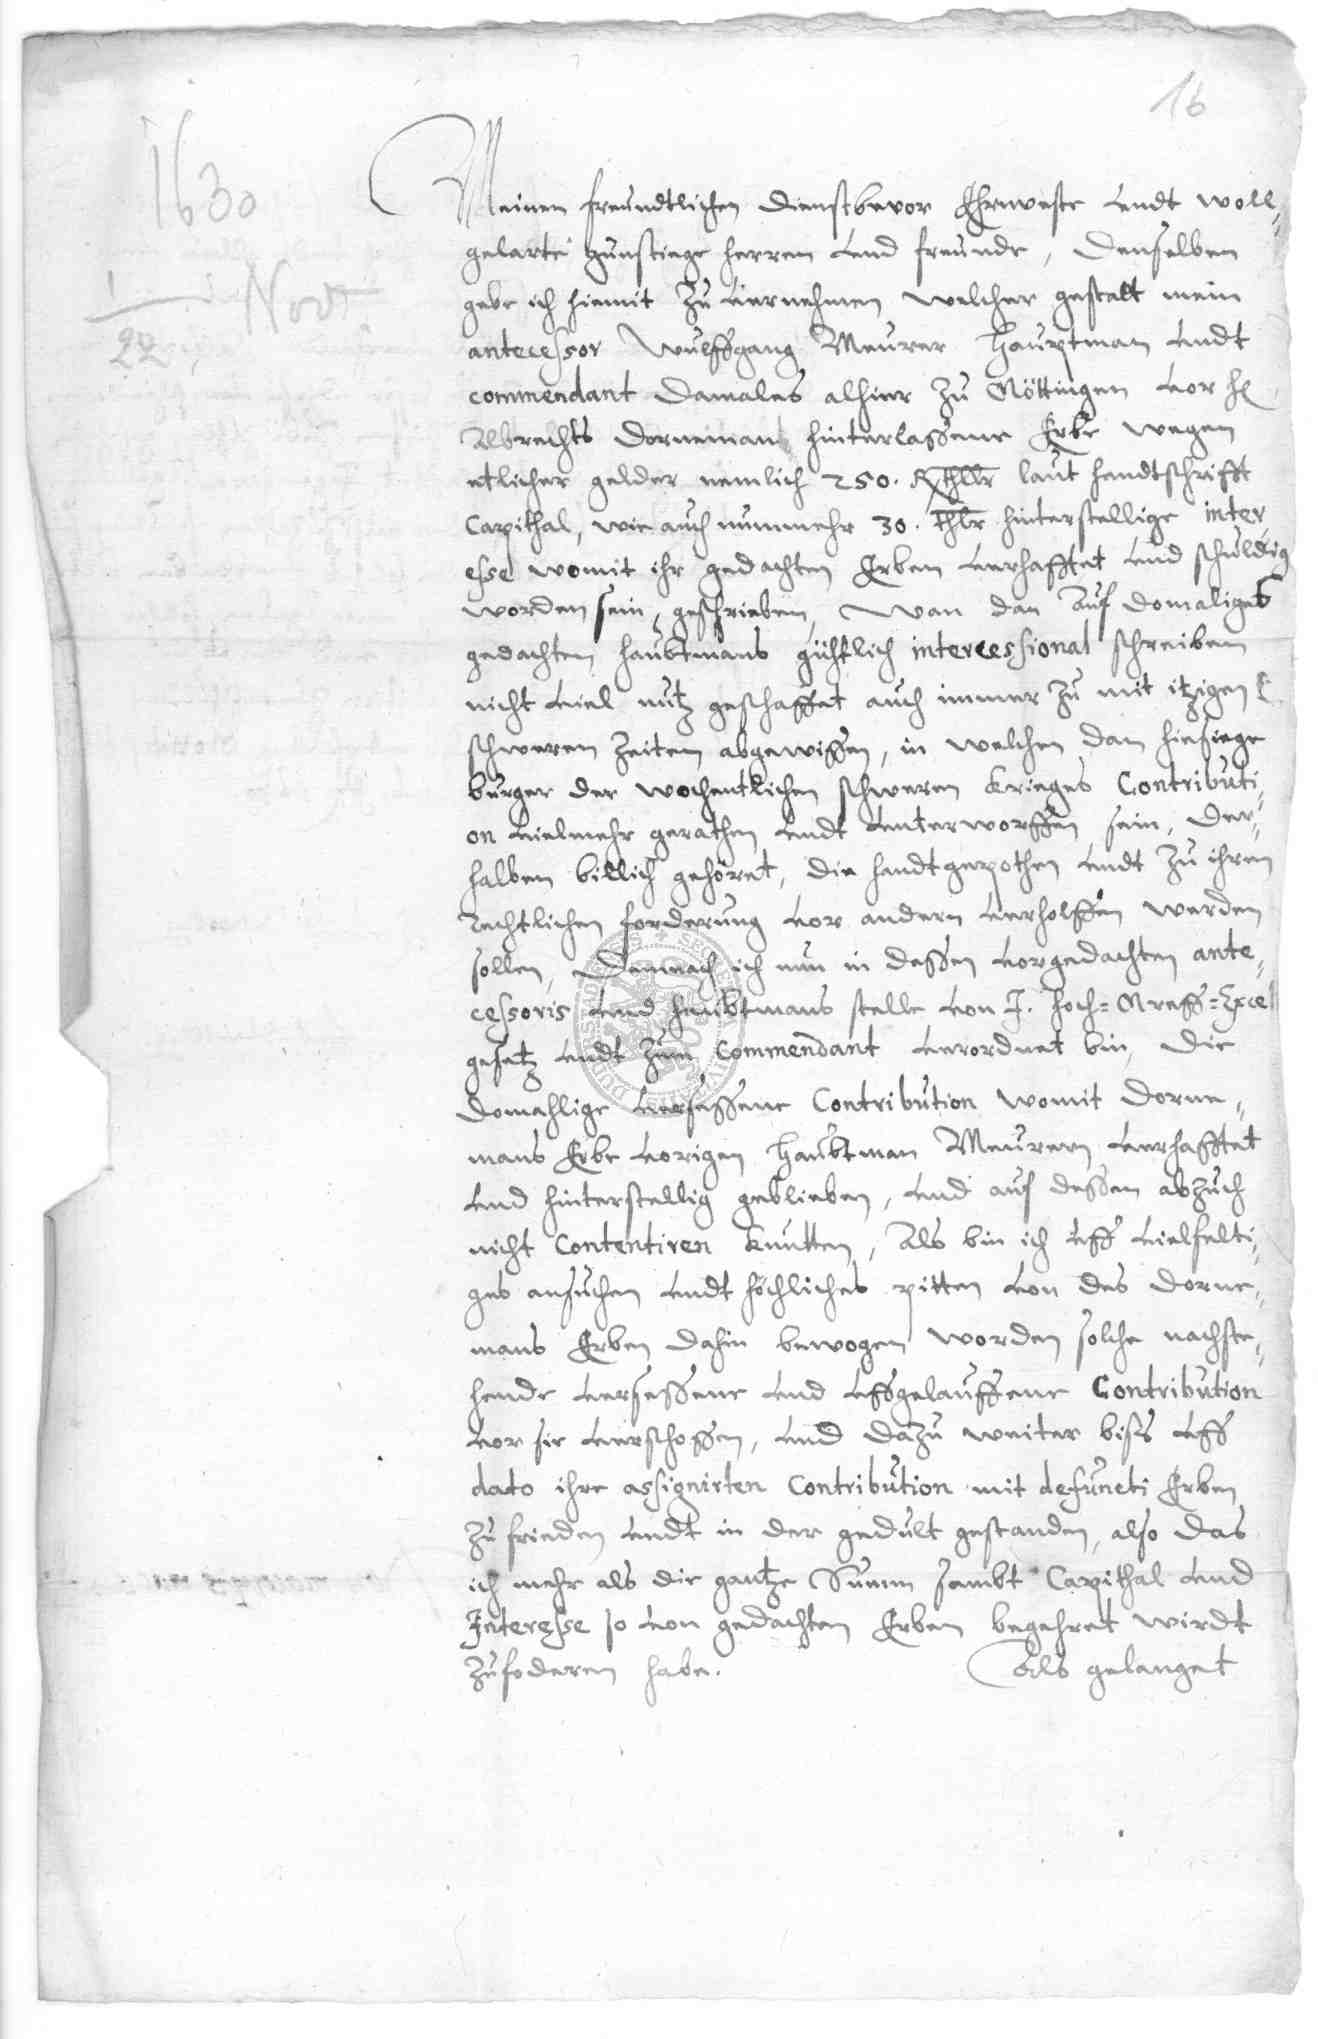 16
1630
1
Nov
22
Meinen freundtlichen dienst bevor Ehrnveste undt woll-
gelarte gunstiege herren und freunde, denselben
gebe ich hiemit zu vernehmen welcher gestalt mein
antecessor Wulffgang Meurer Hauptman undt
commendant damales alhier zu Göttingen vor H
Albrechts Dorneman hinterlaßene Erbe wegen
etlicher gelder nemlich 250. Rthllr laut handtschrifft
Capithal, wie auch nunmehr 30. thlr hinterstellige inter
esse womit ihr gedachten Erben verhafftet und schuldig
worden sein, geschrieben, Wan dan auf domaliges
gedachten haubtmans intercessional schreiben
nicht viel nutz geschaffet auch immer zu mit itzigen
schweren zeiten abgewißen, in welchen dan hiesiege
burger der wochentlichen schweren Krieges Contributi-
on vielmehr gerathen undt unterworffen sein, der-
halben billich gehöret, die handtgepothen undt zu ihren
rechtlichen forderung vor andern verholffen werden
sollen, Demnach ich nun in deßen vorgedachten ante-
cessoris und haubtmans stelle von I. hoch-Graff-Excell
gesetz undt zum Commendant verordnet bin, die
domahlige verseßene Contribution womit Dorne-
mans Erbe vorigen Haubtman Meurern verhafftet
und hinterstellig geblieben, und auf deßen abzuch
nicht Contentiren knutten, Als bin ich uff vielfelti-
ges ansuchen undt höchliches pitten von des Dorne-
mans Erben dahin bewogen worden solche nachste-
hende verseßene und uffgelauffene Contribution
vor sie verschoßen, und dazu weiter biß uff
dato ihre assignirten Contribution mit defuncti Erben
zu frieden undt in der gedult gestanden, also das
ich mehr als die gantze Summ sambt Capithal und
Interesse so von gedachten Erben begehret wirdt
zufoderen habe. Als gelanget